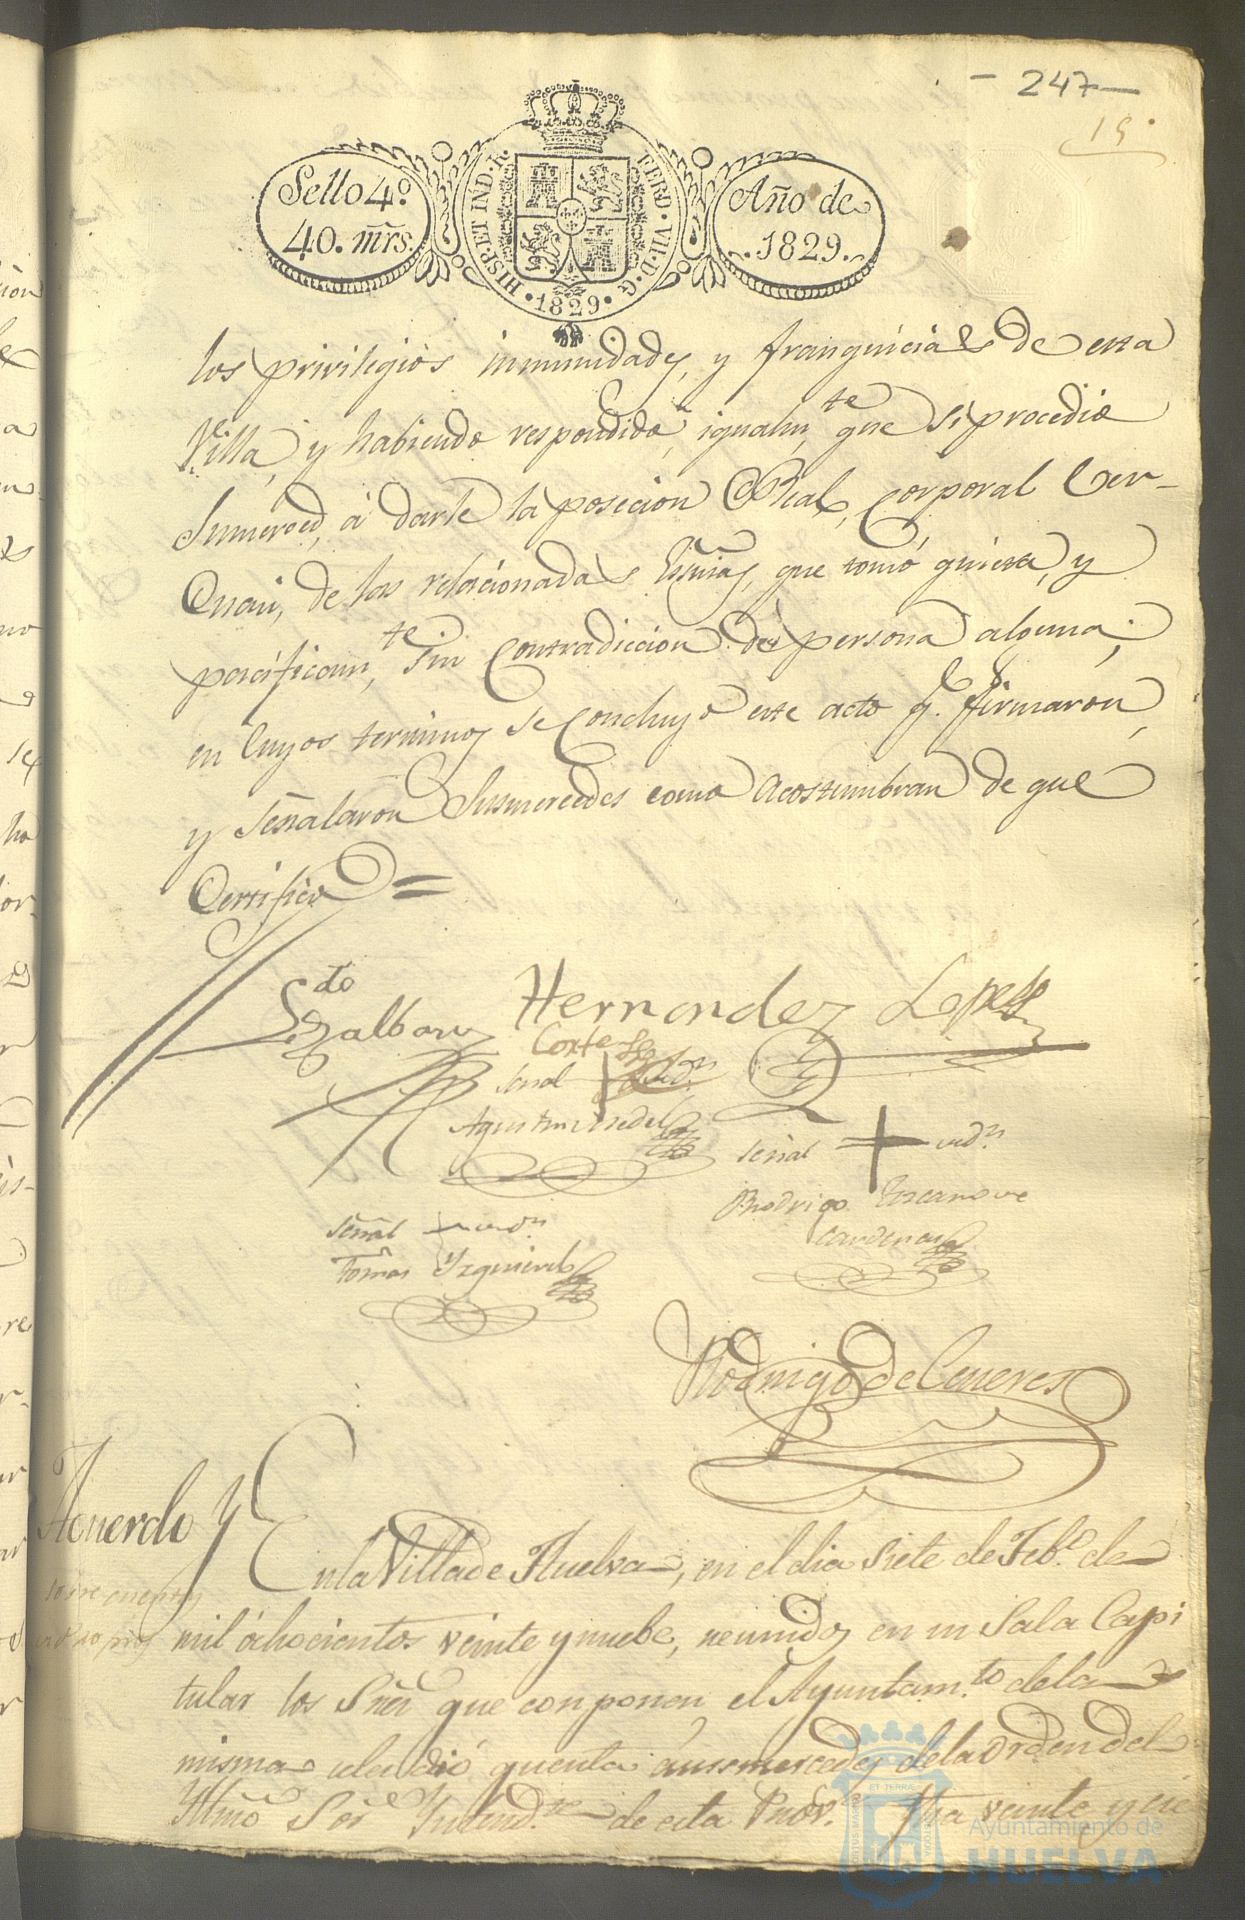 - 247 -
15.
Sello 4º.
40. mrs.
HISP. ET IND. R. FERD. VII. D. G. 1829.
Año de
1829.
los privilegios inmunidades, y franquicias de esta
Villa, y habiendo respondido igualmte. que si procedio
Sumerced, á darle la posecion Real, corporal vel
quasi, de las relacionadas que tomó quieta, y
pacificamte. sin contradiccion de persona alguna;
en cuyos terminos se concluyo este acto q. firmaron,
y señalaron Susmercedes como acostumbran de que
Certifico =
Hernandez Lopez
Cortes
señal + del Redor.
Agustin
señal + redor.
Rodrigo
Cardenas
señal + redor.
Tomas Yzquierdo
Rodrigo de Ceneres
Acuerdo y En la Villa de Huelva, en el dia siete de Febo. de
mil ochocientos veinte y nuebe, reunidos en su Sala Capi
tular los Sres. que conponen el Ayuntamto. dela
misma se les dió quenta ásusmercedes dela Orden del
Yllmo. Sor. Yntendte. de esta Prova. fha veinte y cie
Ayuntamiento de
HUELVA